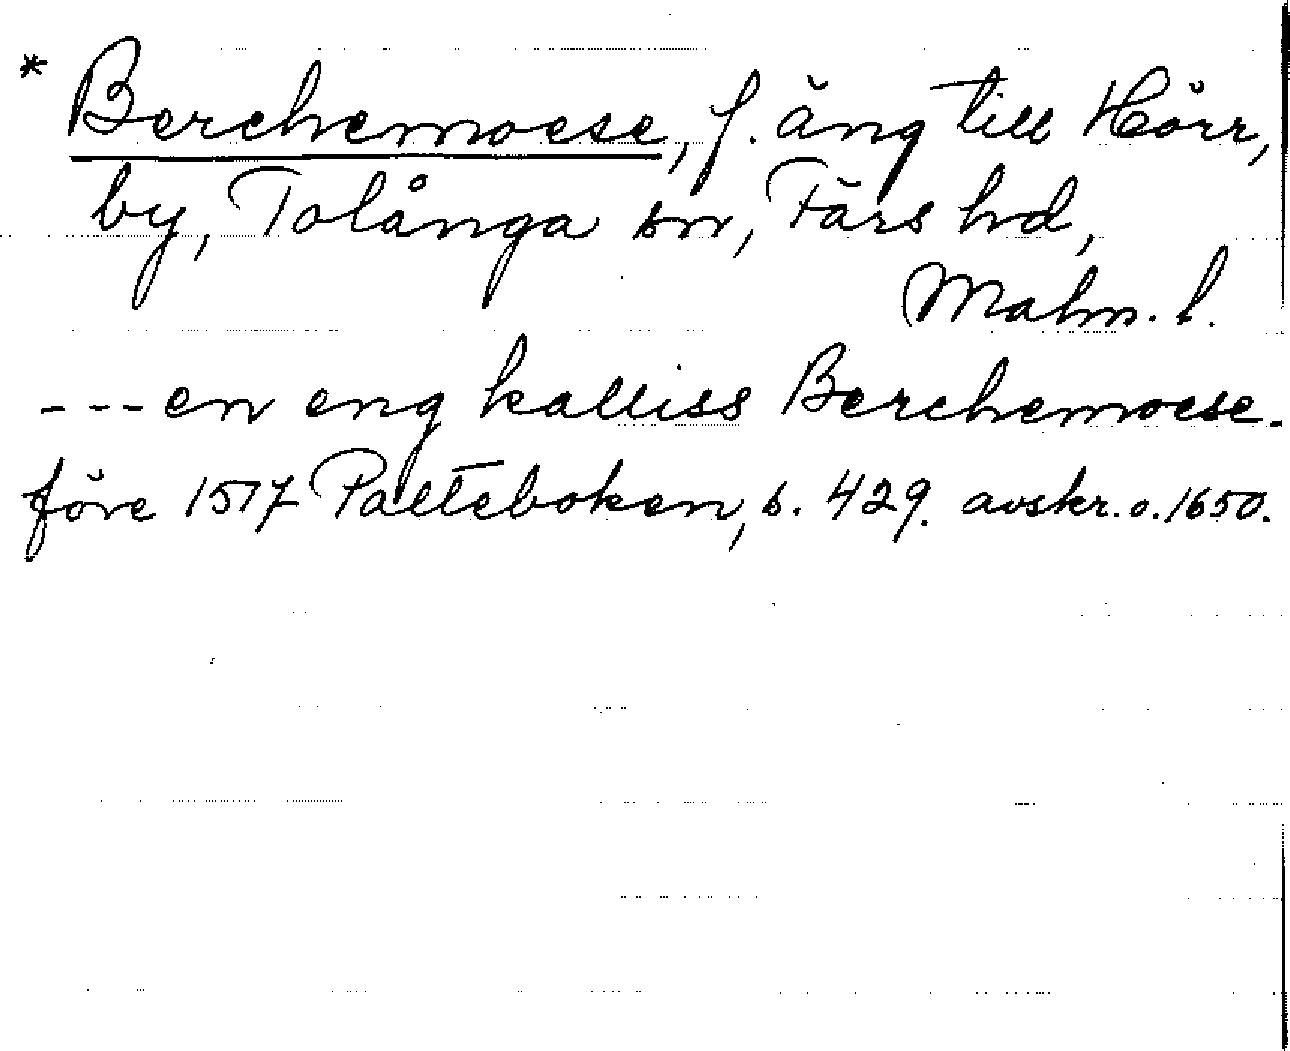 * Berchemoese, f. äng till Hörr,
by, Tolånga sn, Färs hd,
Malm. l.
--- en eng kalliss Berchemoese.
före 1517 Palteboken, s. 429. avskr. o. 1650.